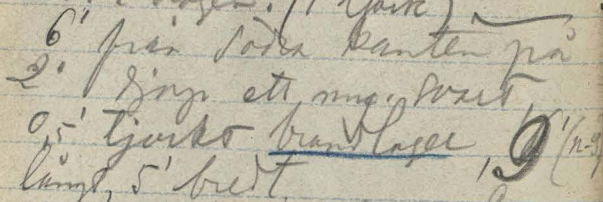 6' från södra kanten på
2' djup ett myc. svart
0,5' tjockt brandlager, 9' (n-s)
långt, 5' bredt.